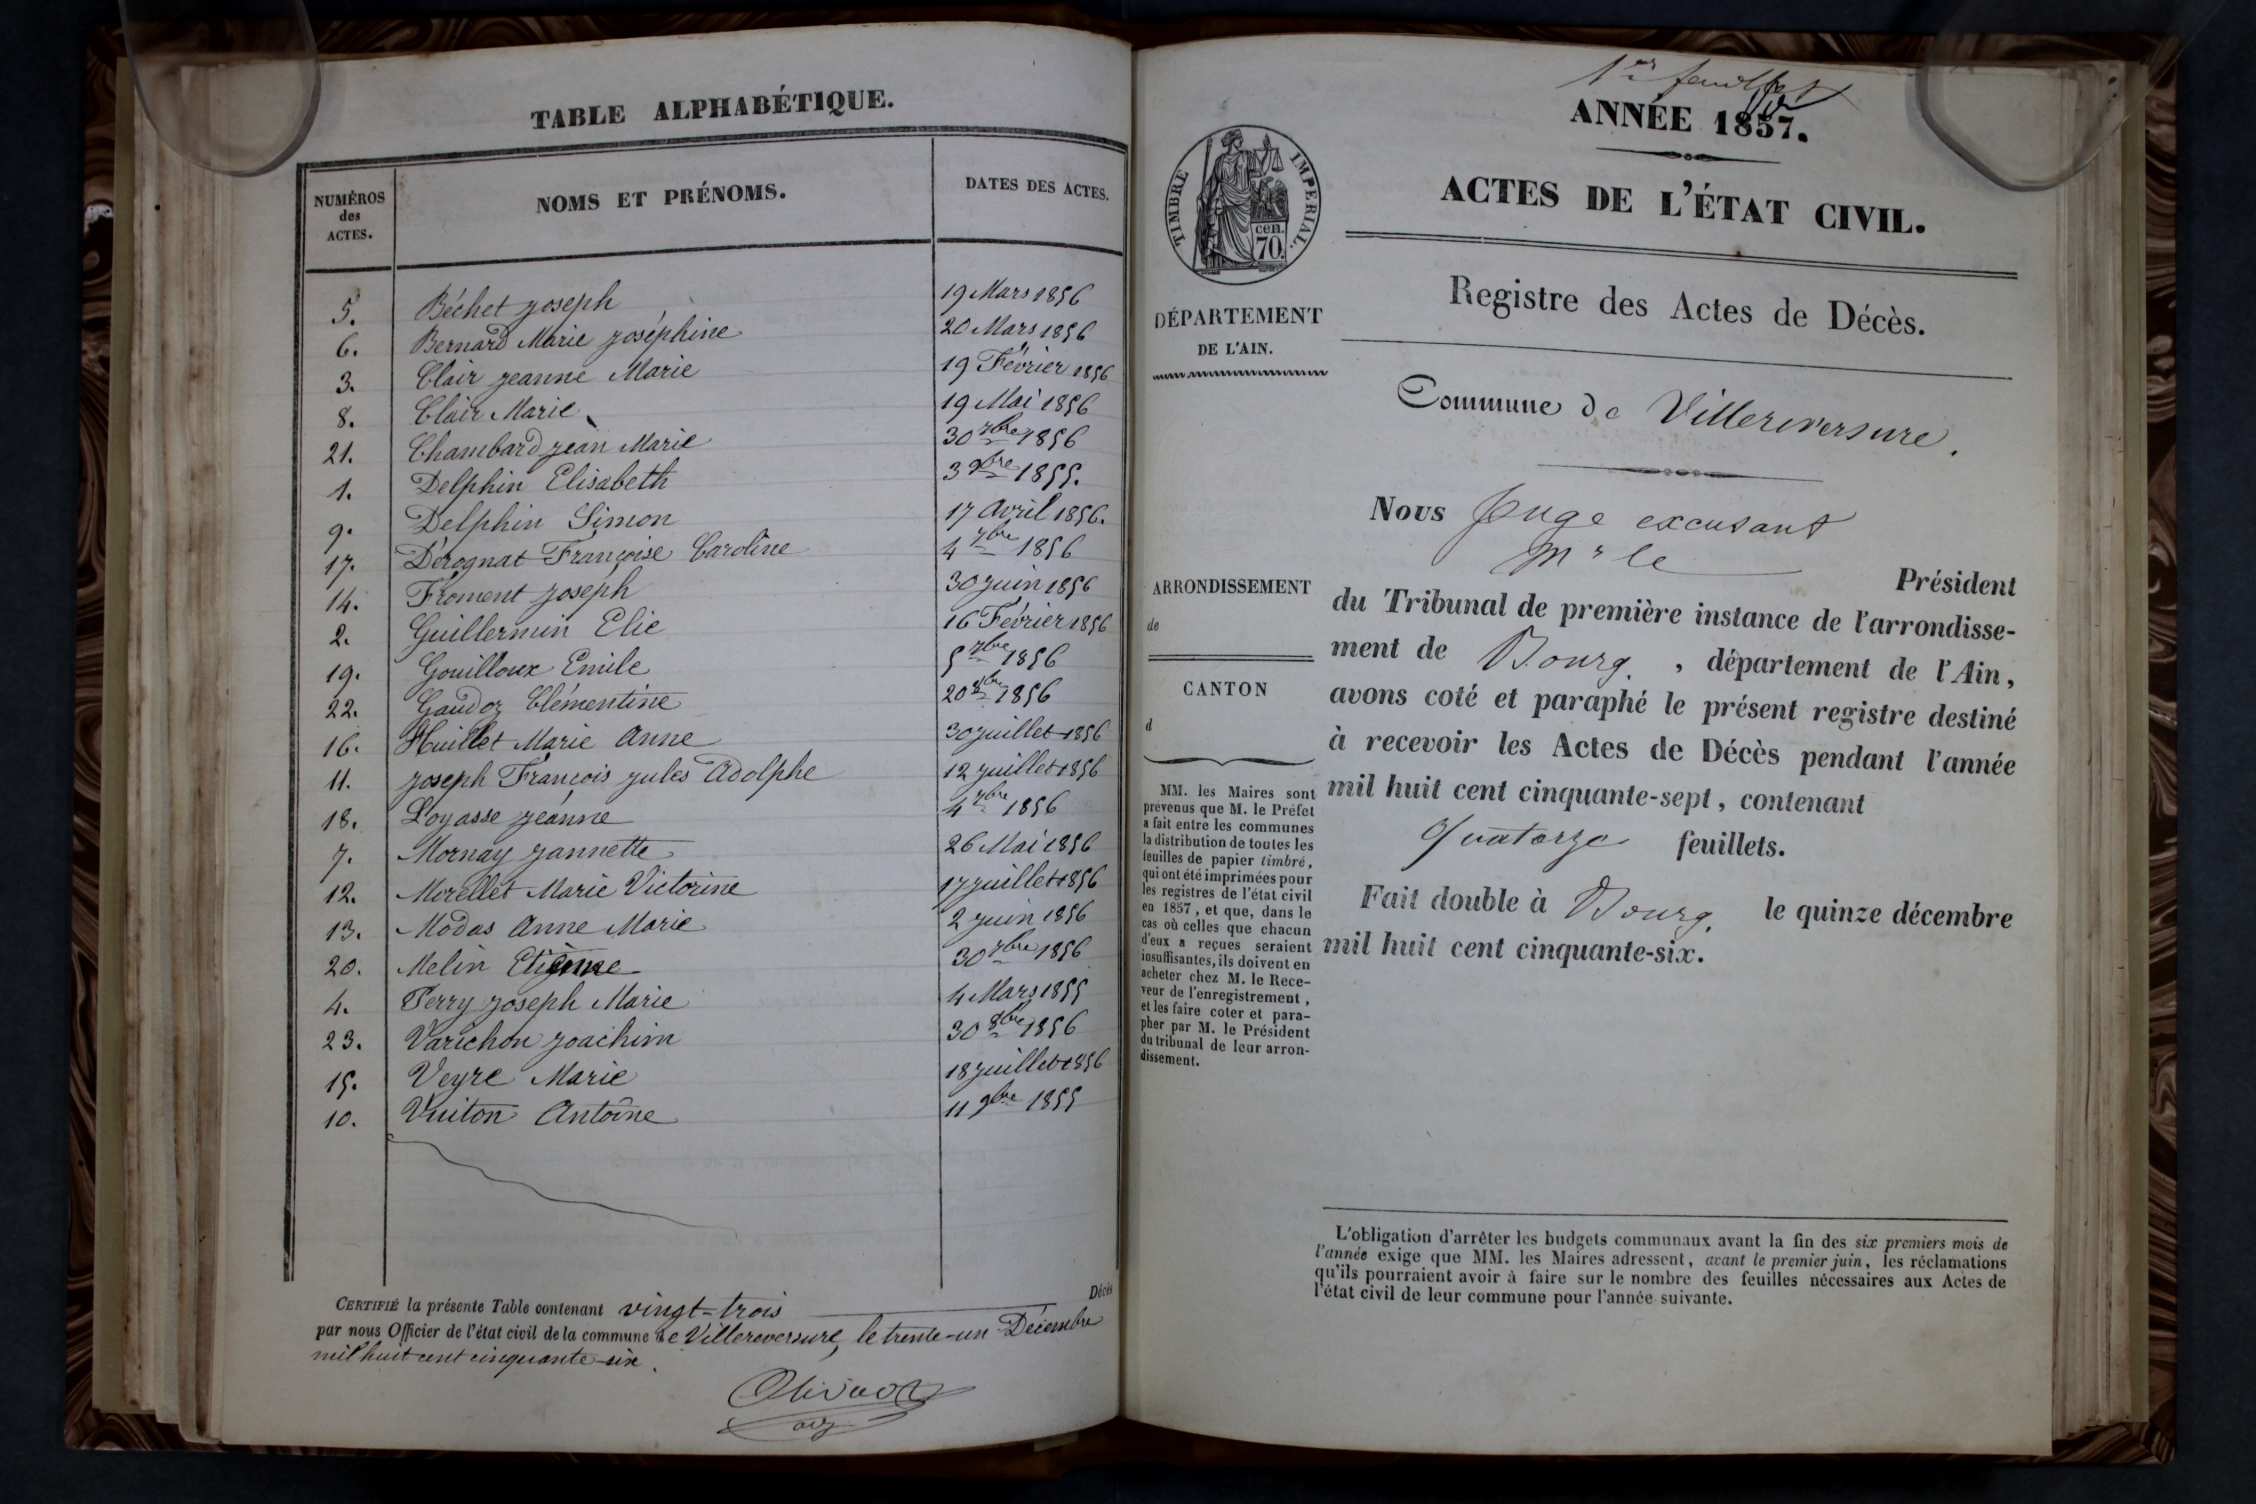 TABLE ALPHABÉTIQUE.
NUMÉROS des ACTES. NOMS ET PRÉNOMS. DATES DES ACTES.
5. Béchet Joseph 19 Mars 1856
6. Bernard Marie Joséphine 20 Mars 1856
3. Clair Jeanne Marie 19 Février 1856
8. Clair Marie 19 Mai 1856
21. Chambard Jean Marie 30 7bre 1856
1. Delphin Elisabeth 3 9bre 1855.
9. Delphin Simon 17 Avril 1856.
17. Dérognat Françoise Caroline 4 7bre 1856
14. Froment Joseph 30 Juin 1856
2. Guillermin Elie 16 Février 1856
19. Gouilloux Emile 5 7bre 1856
22. Gaudoz Clémentine 20 8bre 1856
16. Huillet Marie Anne 30 Juillet 1856
11. Joseph François Jules Adolphe 12 Juillet 1856
18. Loyasse Jeanne 4 7bre 1856
7. Mornay Jannette 26 Mai 1856
12. Morellet Marie Victorine 17 Juillet 1856
13. Modas Anne Marie 2 Juin 1856
20. Melin Etienne 30 7bre 1856
4. Perry Joseph Marie 4 Mars 1855
23. Varichon Joachim 30 8bre 1856
15. Veyre Marie 18 Juillet 1856
10. Vuiton Antoine 11 9bre 1855
CERTIFIÉ la présente Table contenant vingt-trois Décès
par nous Officier de l'état civil de la commune de Villereversure, le trente-un Décembre
mil huit cent cinquante-six.
1er feuillet
ANNÉE 1857.
ACTES DE L'ÉTAT CIVIL.
TIMBRE IMPERIAL.
cen.
70.
Registre des Actes de Décès.
DÉPARTEMENT
DE L'AIN.
Commune de Villereversure.
Nous Juge excusant
Mr le Président
du Tribunal de première instance de l'arrondisse-
ment de Bourg, département de l'Ain,
avons coté et paraphé le présent registre destiné
à recevoir les Actes de Décès pendant l'année
mil huit cent cinquante-sept, contenant
Quatorze feuillets.
Fait double à Bourg, le quinze décembre
mil huit cent cinquante-six.
ARRONDISSEMENT
de
CANTON
d
MM. les Maires sont
prévenus que M. le Préfet
a fait entre les communes
la distribution de toutes les
feuilles de papier timbré,
qui ont été imprimées pour
les registres de l'état civil
en 1857, et que, dans le
cas où celles que chacun
d'eux a reçues seraient
insuffisantes, ils doivent en
acheter chez M. le Rece-
veur de l'enregistrement,
et les faire coter et para-
pher par M. le Président
du tribunal de leur arron-
dissement.
L'obligation d'arrêter les budgets communaux avant la fin des six premiers mois de
l'année exige que MM. les Maires adressent, avant le premier juin, les réclamations
qu'ils pourraient avoir à faire sur le nombre des feuilles nécessaires aux Actes de
l'état civil de leur commune pour l'année suivante.